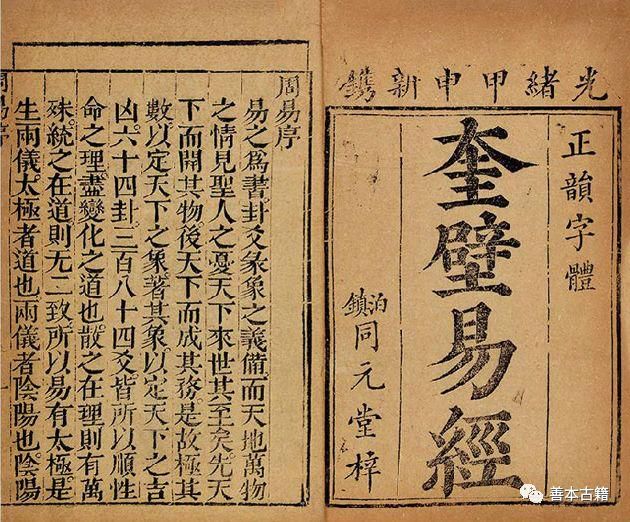 光緒甲申新鐫
正韻字體
奎壁易經
泊鎮同元堂梓
周易序
易之爲書卦爻彖象之義備而天地萬物
之情見聖人之憂天下來世其至矣先天
下而開其物後天下而成其務是故極其
數以定天下之象著其象以定天下之吉
凶六十四卦三百八十四爻皆所以順性
命之理盡變化之道也散之在理則有萬
殊統之在道則无二致所以易有太極是
生兩儀太極者道也兩儀者陰陽也陰陽
周易序
善本古籍